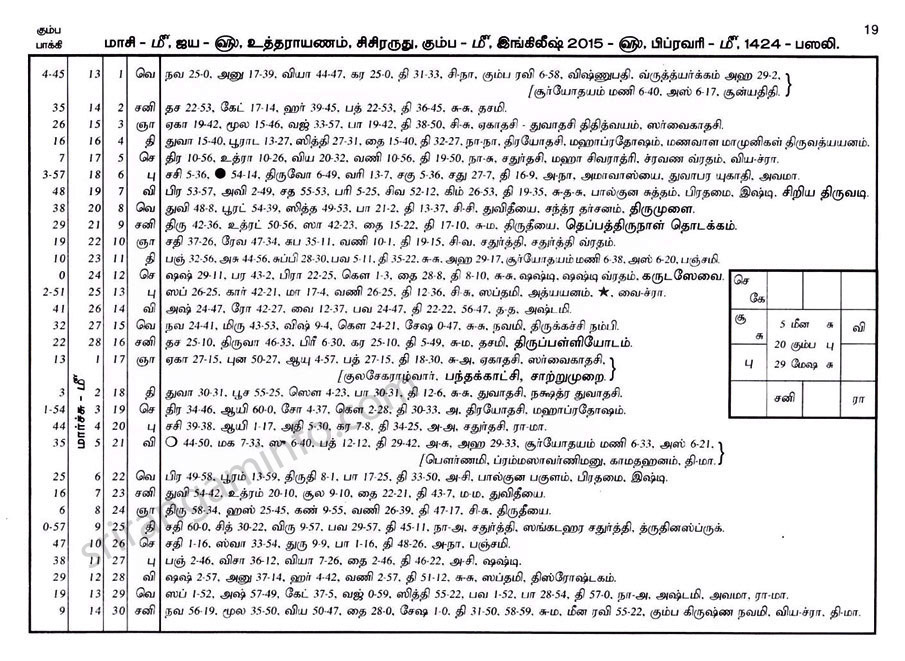 19
கும்ப
பாக்கி
மாசி - மீ, ஜய - ௵, உத்தராயணம், சிசிரருது, கும்ப - மீ, இங்கிலீஷ் 2015 - ௵, பிப்ரவரி - மீ, 1424 - பஸலி.
4-45 13 1 வெ நவ 25-0, அனு 17-39, வியா 44-47, கர 25-0, தி 31-33, சி-நா, கும்ப ரவி 6-58, விஷ்ணுபதி, வ்ருத்யர்க்கம் அஹ 29-2,
[சூர்யோதயம் மணி 6-40, அஸ் 6-17, சூன்யதிதி.
35 14 2 சனி தச 22-53, கேட் 17-14, ஹர் 39-45, பத் 22-53, தி 36-45, சு-சு, தசமி.
26 15 3 ஞா ஏகா 19-42, மூல 15-46, வஜ் 33-57, பா 19-42, தி 38-50, சி-சு, ஏகாதசி - துவாதசி திதித்வயம், ஸர்வைகாதசி.
16 16 4 தி துவா 15-40, பூராட 13-27, ஸித்தி 27-31, தை 15-40, தி 32-27, நா-நா, திரயோதசி, மஹாப்ரதோஷம், மணவாள மாமுனிகள் திருவத்யயனம்.
7 17 5 செ திர 10-56, உத்ரா 10-26, விய 20-32, வணி 10-56, தி 19-50, நா-சு, சதுர்தசி, மஹா சிவராத்ரி, ச்ரவண வ்ரதம், விய-ச்ரா.
3-57 18 6 பு சசி 5-36, ● 54-14, திருவோ 6-49, வரி 13-7, சகு 5-36, சது 27-7, தி 16-9, அ-நா, அமாவாஸ்யை, துவாபர யுகாதி, அவமா.
48 19 7 வி பிர 53-57, அவி 2-49, சத 55-53, பரி 5-25, சிவ 52-12, கிம் 26-53, தி 19-35, சு-த-சு, பால்குன சுத்தம், பிரதமை, இஷ்டி. சிறிய திருவடி.
38 20 8 வெ துவி 48-8, பூரட் 54-39, ஸித்த 49-53, பா 21-2, தி 13-37, சி-சி, துவிதீயை, சந்த்ர தர்சனம், திருமுளை.
29 21 9 சனி திரு 42-36, உத்ரட் 50-56, ஸா 42-23, தை 15-22, தி 17-10, சு-ம, திருதீயை, தெப்பத்திருநாள் தொடக்கம்.
19 22 10 ஞா சதி 37-26, ரேவ 47-34, சுப 35-11, வணி 10-1, தி 19-15, சி-வ, சதுர்த்தி, சதுர்த்தி வ்ரதம்.
10 23 11 தி பஞ் 32-56, அசு 44-56, சுப்பி 28-30, பவ 5-11, தி 35-22, சு-சு, அஹ 29-17, சூர்யோதயம் மணி 6-38, அஸ் 6-20, பஞ்சமி.
0 24 12 செ ஷஷ் 29-11, பர 43-2, பிரா 22-25, கௌ 1-3, தை 28-8, தி 8-10, சு-சு, ஷஷ்டி, ஷஷ்டி வ்ரதம், கருடஸேவை.
2-51 25 13 பு ஸப் 26-25, கார் 42-21, மா 17-4, வணி 26-25, தி 12-36, சி-சு, ஸப்தமி, அத்யயனம், ★, வை-ச்ரா.
41 26 14 வி அஷ் 24-47, ரோ 42-27, வை 12-37, பவ 24-47, தி 22-22, 56-47, த-த, அஷ்டமி.
32 27 15 வெ நவ 24-41, மிரு 43-53, விஷ் 9-4, கௌ 24-21, சேஷ 0-47, சு-சு, நவமி, திருக்கச்சி நம்பி.
22 28 16 சனி தச 25-10, திருவா 46-33, பிரீ 6-30, கர 25-10, தி 5-49, சு-ம, தசமி, திருப்பள்ளியோடம்.
மார்ச்சு - மீ
13 1 17 ஞா ஏகா 27-15, புன 50-27, ஆயு 4-57, பத் 27-15, தி 18-30, சு-அ, ஏகாதசி, ஸர்வைகாதசி,
[குலசேகராழ்வார். பந்தக்காட்சி, சாற்றுமுறை.
3 2 18 தி துவா 30-31, பூச 55-25, ஸௌ 4-23, பா 30-31, தி 12-6, சு-சு, துவாதசி, நக்ஷத்ர துவாதசி.
1-54 3 19 செ திர 34-46, ஆயி 60-0, சோ 4-37, கௌ 2-28, தி 30-33, அ, திரயோதசி, மஹாப்ரதோஷம்.
44 4 20 பு சசி 39-38, ஆயி 1-17, அதி 5-30, கர 7-8, தி 34-25, அ-அ, சதுர்தசி, ரா-மா.
35 5 21 வி ○ 44-50, மக 7-33, சு 6-40, பத் 12-12, தி 29-42, அ-சு, அஹ 29-33, சூர்யோதயம் மணி 6-33, அஸ் 6-21,
[பௌர்ணமி, ப்ரம்மஸாவர்ணிமனு, காமதஹனம், தி-மா.
25 6 22 வெ பிர 49-58, பூரம் 13-59, திருதி 8-1, பா 17-25, தி 33-50, அ-சி, பால்குன பகுளம், பிரதமை, இஷ்டி.
16 7 23 சனி துவி 54-42, உத்ரம் 20-10, சூல 9-10, தை 22-21, தி 43-7, ம-ம, துவிதீயை.
6 8 24 ஞா திரு 58-34, ஹஸ் 25-45, கண் 9-55, வணி 26-39, தி 47-17, சி-சு, திருதீயை.
0-57 9 25 தி சதி 60-0, சித் 30-22, விரு 9-57, பவ 29-57, தி 45-11, நா-அ, சதுர்த்தி, ஸங்கடஹர சதுர்த்தி, த்ருதினஸ்ப்ருக்.
47 10 26 செ சதி 1-16, ஸ்வா 33-54, துரு 9-9, பா 1-16, தி 48-26, அ-நா, பஞ்சமி.
38 11 27 பு பஞ் 2-46, விசா 36-12, வியா 7-26, தை 2-46, தி 46-22, அ-சி, ஷஷ்டி.
29 12 28 வி ஷஷ் 2-57, அனு 37-14, ஹர் 4-42, வணி 2-57, தி 51-12, சு-சு, ஸப்தமி, திஸ்ரோஷ்டகம்.
19 13 29 வெ ஸப் 1-52, அஷ் 57-49, கேட் 37-5, வஜ் 0-59, ஸித்தி 55-22, பவ 1-52, பா 28-54, தி 57-0, நா-அ, அஷ்டமி, அவமா, ரா-மா.
9 14 30 சனி நவ 56-19, மூல 35-50, விய 50-47, தை 28-0, சேஷ 1-0, தி 31-50, 58-59, சு-ம, மீன ரவி 55-22, கும்ப கிருஷ்ண நவமி, விய-ச்ரா, தி-மா.
செ
கே
சூ
சு
5 மீன சு
20 கும்ப பு
29 மேஷ சு
வி
பு
சனி
ரா
srirangaminfo.com